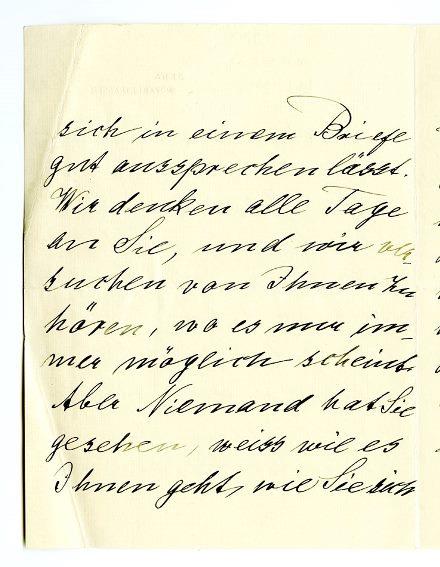 sich in einem Briefe
gut aussprechen lässt.
Wir denken alle Tage
an Sie, und wir ver
suchen von Ihnen zu
hören, wo es nur im-
mer möglich scheint.
Aber Niemand hat Sie
gesehen, weiss wie es
Ihnen geht, wie Sie sich